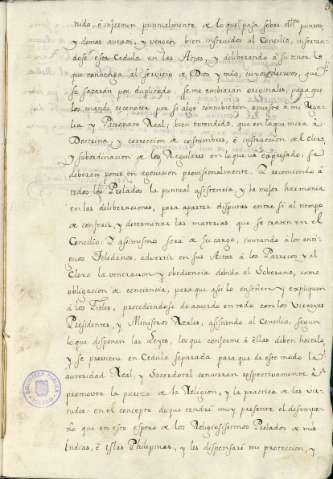 nido, è informen puntualmente de lo que pasa sobre dhõs puntos
y demas asensos, y vengan bien instruidos al Concilio, insertan
dose esta Cedula en las Actas, y deliberando à su zelo lo
que conduzga al servicio de Dios y mio, cuyos decretos, que
se sacarán por duplicado, se me embiarán originales, para que
los mande reconocer por si algo contubieren, opuesto à mi Rega
lia y Patronato Real; bien entendido, que en lo que mira à
Doctrina, y correccion de costumbres, è instruccion del Clero,
y subordinacion de los Regulares en lo que va expresado, se
deberán poner en execucion provisionalmente. Y recomiendo à
todos los Prelados la puntual asistencia, y la mejor harmonia
en las deliberaciones, para apartar disputas entre si al tiempo
de conferir, y determinar las materias que se traten en el
Concilio. Y asimismo será de su cargo, imitando à los anti
guos Toledanos, advertir en sus Actas à los Parrocos y al
Clero la veneracion y obediencia debida al Soberano, como
obligacion de conciencia, para que asi lo enseñen y expliquen
à los Fieles, procediendose de acuerdo en todo con los Vireyes
Presidentes, y Ministros Reales, asistiendo al Concilio, segun
lo que disponen las Leyes, los que conforme à ellas deben hacerlo,
y se previene en Cedula separada para que de este modo la
autoridad Real, y Sacerdotal concurran respectivamente à
promover la pureza de la Religion, y la practica de las vir
tudes en el concepto de que tendré muy presente el desempe
ño que en esto espero de los Religiosisimos Prelados de mis
Indias, è Islas Philipinas, y les dispensaré mi proteccion, y